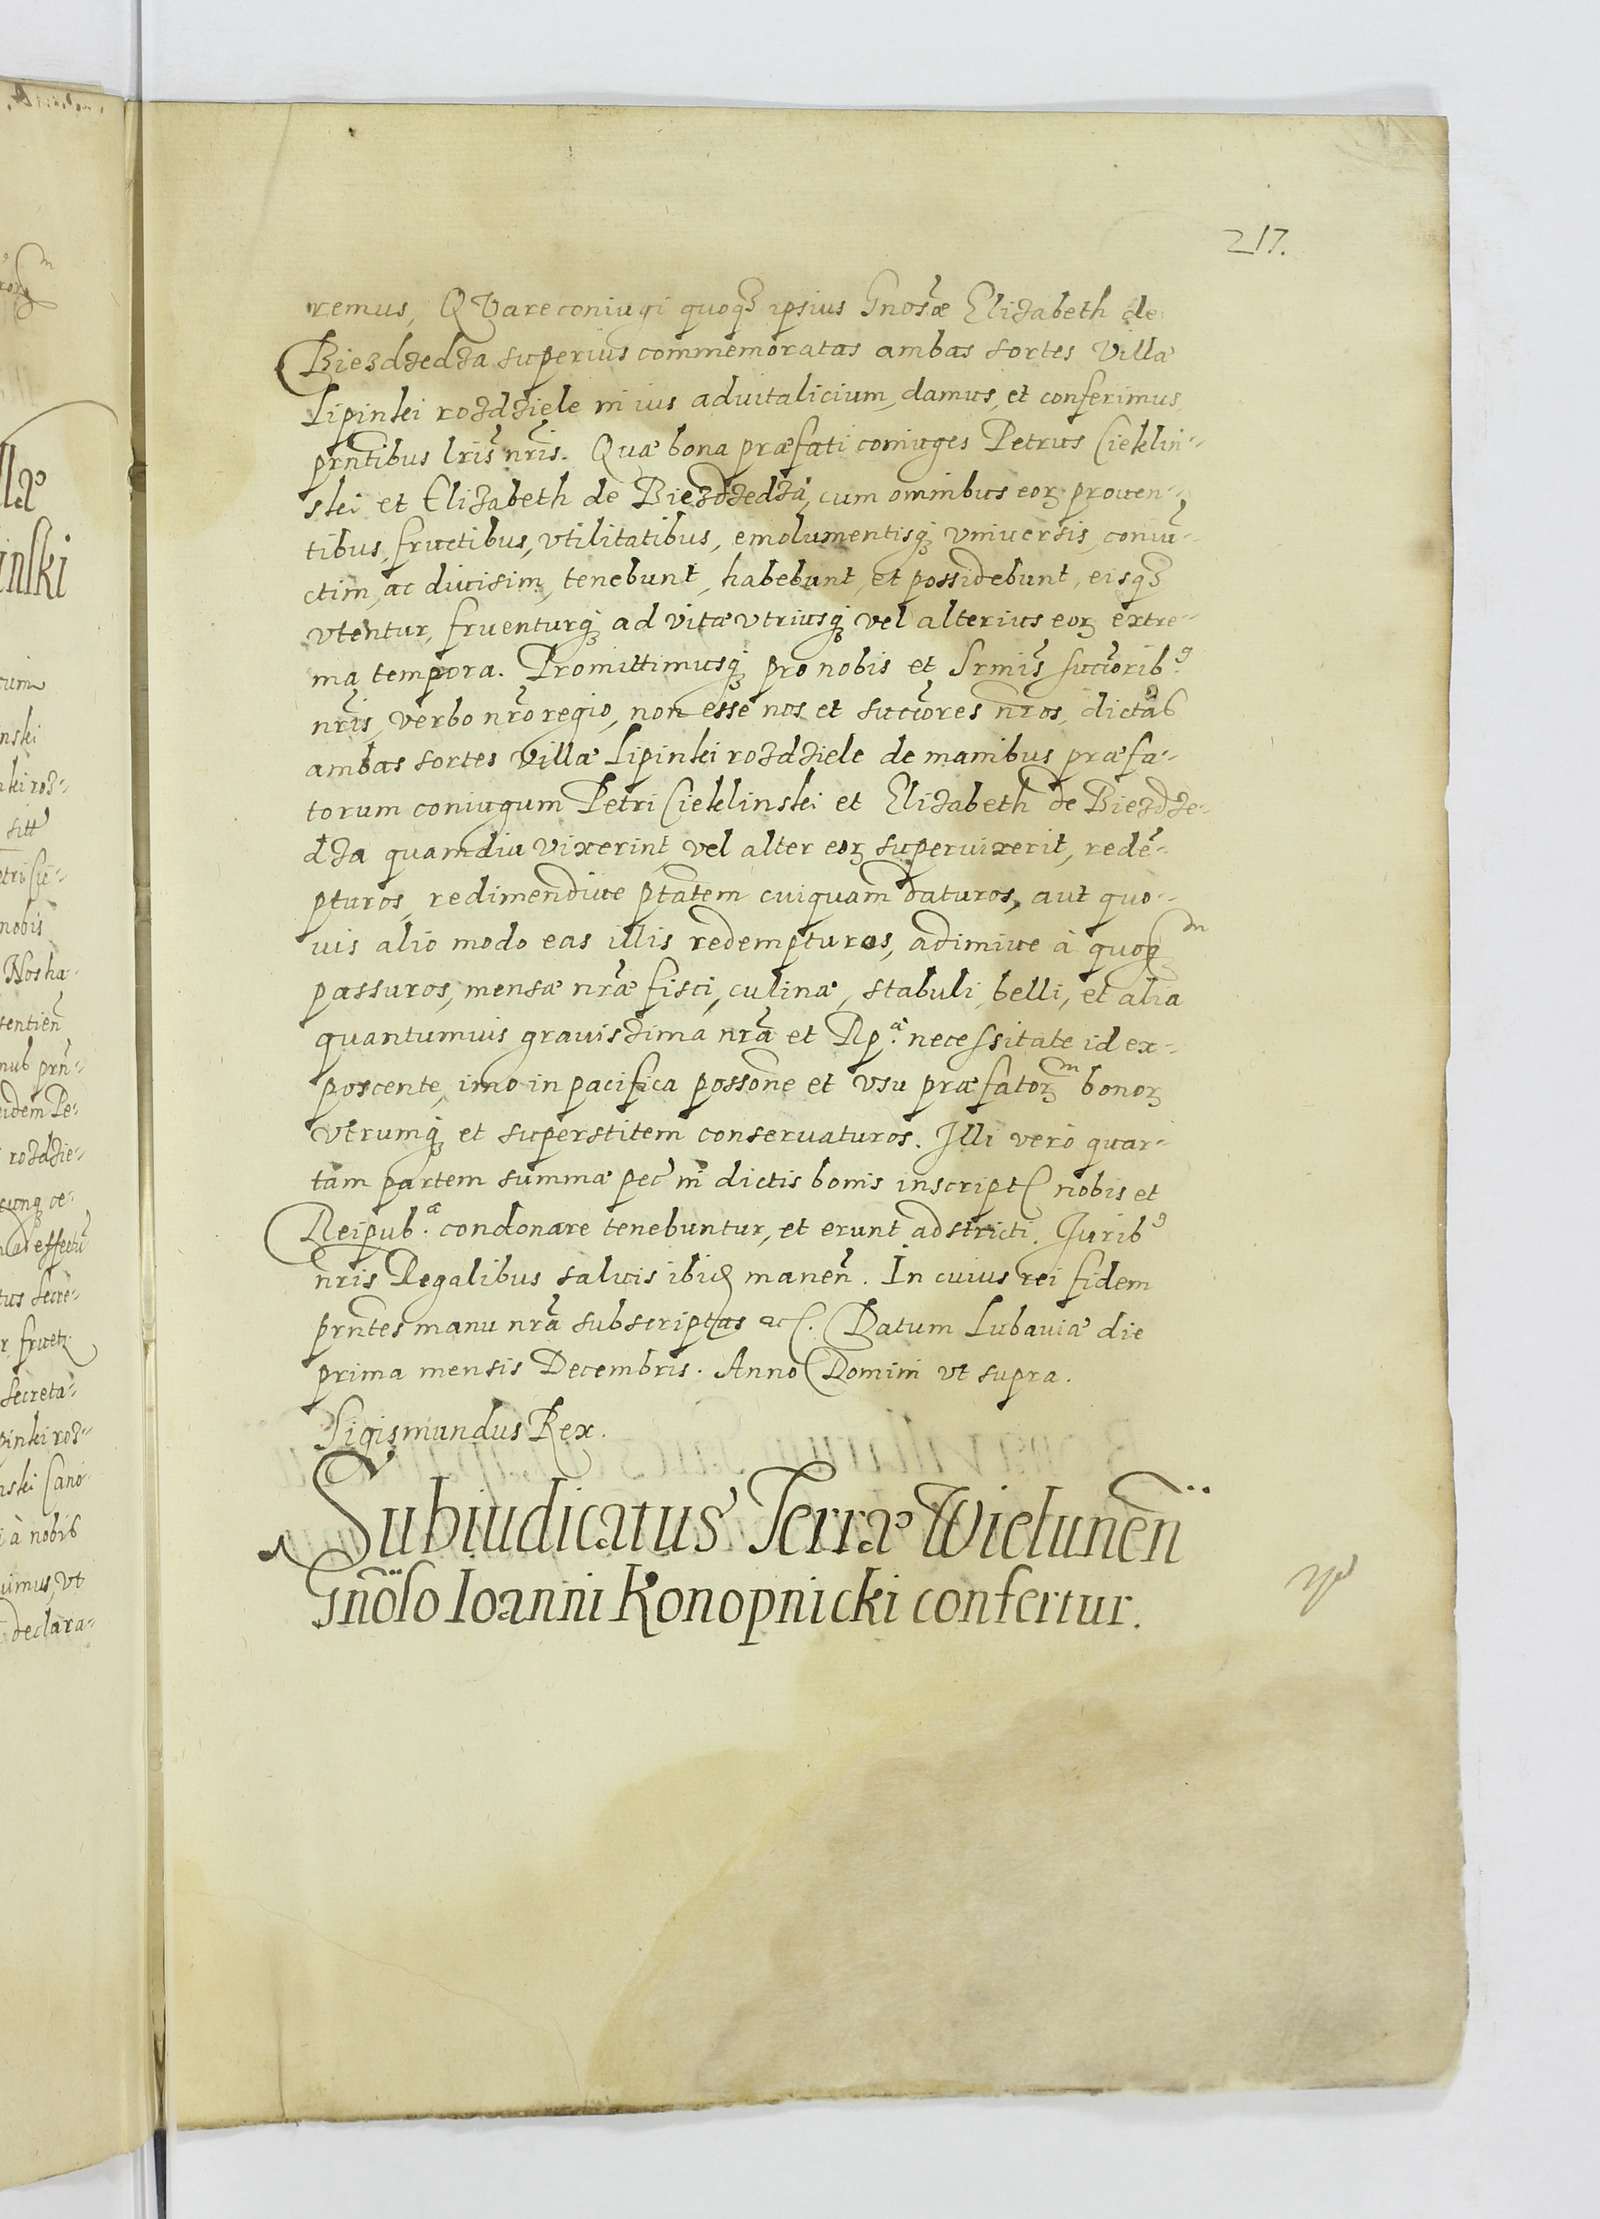 217.
remus, QVare coniugi quoq₃ ipsius Gnosæ Elizabeth de
Biezdzedza superius commemoratas ambas sortes Villæ
Lipinki rozdziele in ius aduitalicium, damus, et conferimus
prñtibus lris nris. Quæ bona præfati coniuges Petrus Cieklin-
ski et Elizabeth de Biezdzedza, cum omnibus eoꝝ prouen-
tibus, fructibus, vtilitatibus, emolumentisq₃ vniuersis, coniu-
ctim, ac diuisim, tenebunt, habebunt, et possidebunt, eisq₃
vtentur, fruenturq₃ ad vitæ vtriusq₃ vel alterius eoꝝ extre-
ma tempora. Promittimusq₃ pro nobis et Srmis succorib⁹
nris, verbo nro regio, non esse nos et succores nros, dictas
ambas sortes Villæ Lipinki rozdziele de manibus præfa-
torum coniugum Petri Cieklinski et Elizabeth de Biezdze-
dza quamdiu vixerint, vel alter eoꝝ superuixerit, redē-
pturos, redimendiue ptatem cuiquam daturos, aut quo-
uis alio modo eas illis redempturos, adimiue à quoqᵐ
passuros, mensæ nræ fisci, culinæ, stabuli, belli, et alia
quantumuis grauissima nra et Rpᵃ. necessitate id ex-
poscente, imo in pacifica possone et vsu præfatoꝝᵐ bonoꝝ
vtrumq₃ et superstitem conseruaturos. Illi vero quar-
tam partem summæ pec in dictis bonis inscript nobis et
Reipub.ᵃ condonare tenebuntur, et erunt adstricti. Jurib⁹
nris Regalibus saluis ibid manen. In cuius rei fidem
prñtes manu nra subscriptas ac. Datum Lubauiæ die
prima mensis Decembris. Anno Domini vt supra.
Sigismundus Rex.
Subiudicatus Terræ Wielunen̄
Gnoso Ioanni Konopnicki confertur.